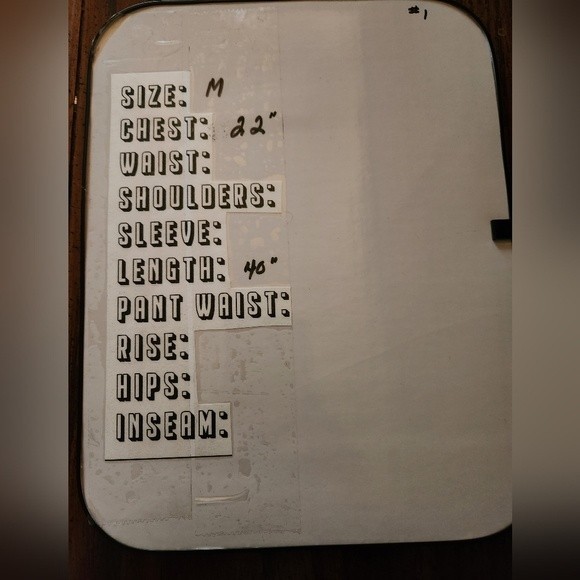 #1
SIZE: M
CHEST: 22"
WAIST:
SHOULDERS:
SLEEVE:
LENGTH: 40"
PANT WAIST:
RISE:
HIPS:
INSEAM: